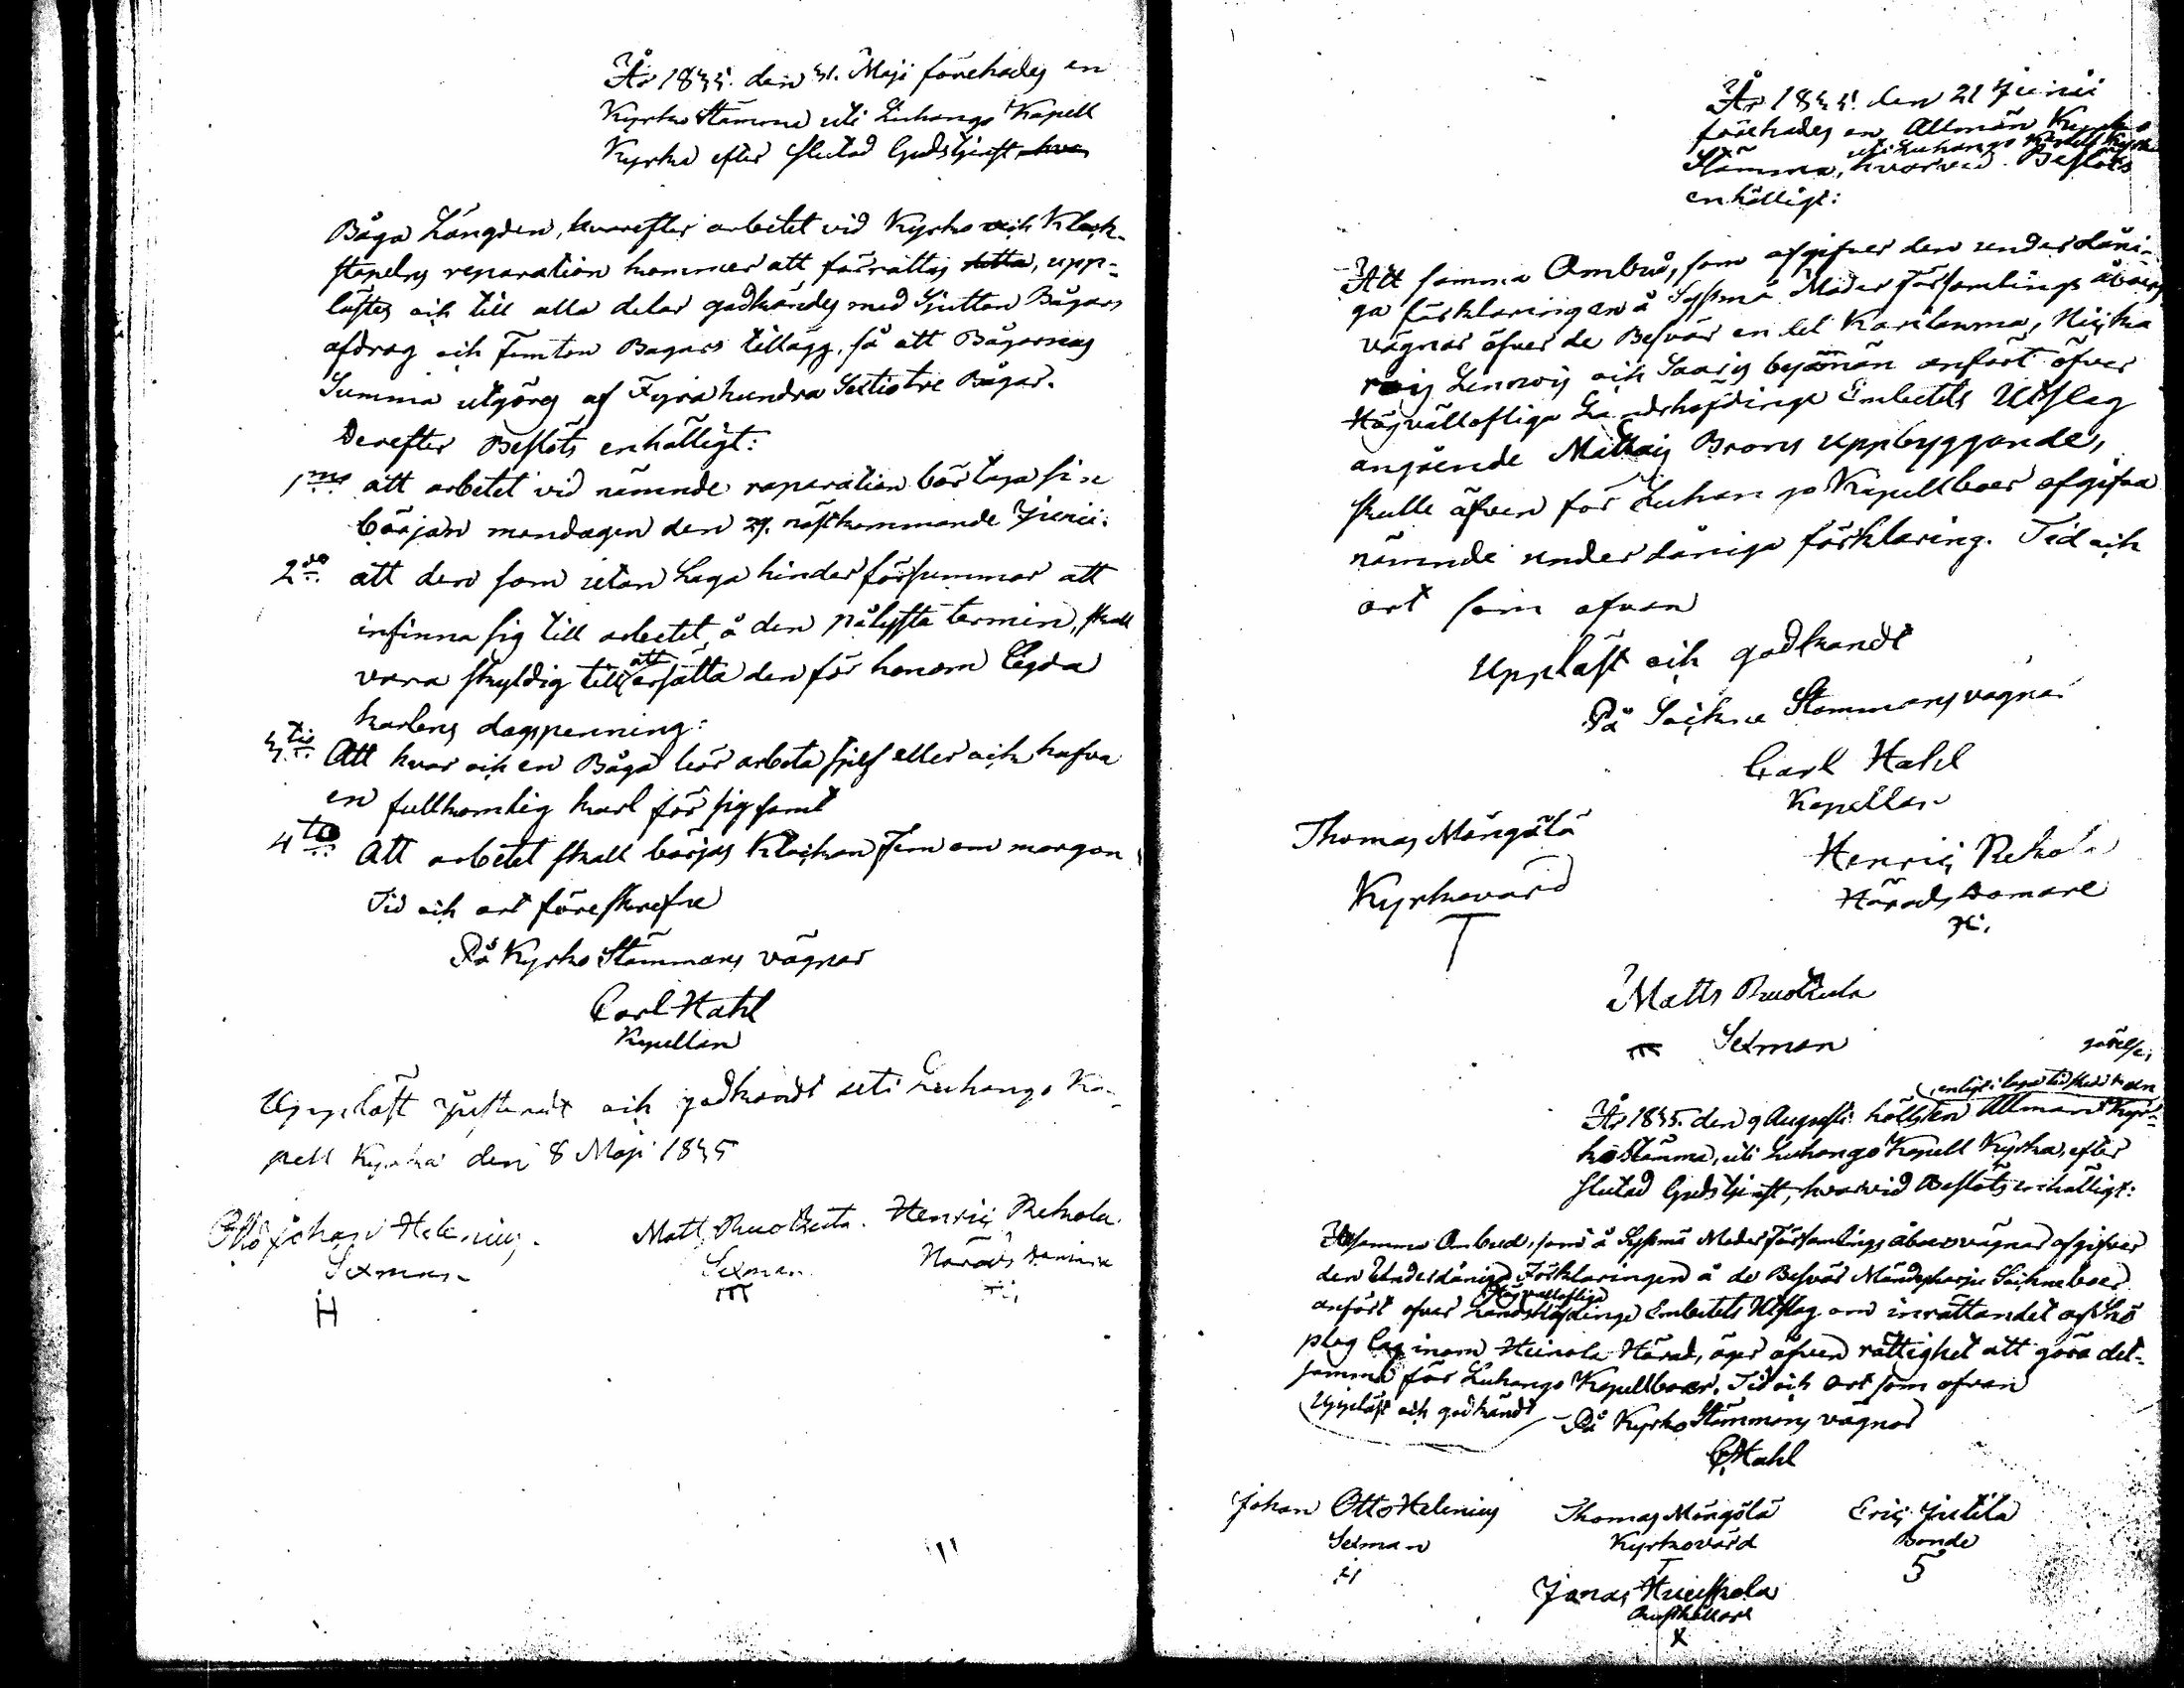 År 1835. den 31. Maji förehades en
Kyrko Stämma uti Luhango Kapell
Kyrka efter slutad Gudstjenst hva
Båga Längden, hvarefter arbetet vid Kyrko och Klock-
stapelns reparation kommer att förrättas, upp-
lästes och till alla delar godkändes med Sjutton Bågars
afdrag och Femton Bagars tillägg, så att Bågarnas
Summa utgöres af Fyrahundra Sextiotre Bågar.
Derefter Beslöts enhälligt:
1mo att arbetet vid nämnde reparation bör taga sin
början mondagen den 29. nästkommande Junii.
2do att den som utan Laga hinder försummar att
infinna sig till arbetet å den pålysta termin, skall
vara skyldig till att ersätta den för honom legda
karlens dagspenning:
3tio Att hvar och en Båga bör arbeta sjelf eller och hafva
en fullkomlig karl för sig samt
4to Att arbetet skall börjas Klockan Fem om morgon
Tid och ort föreskrefne
På Kyrko Stämmans vägnar
Carl Hahl
Kapellan
Uppläst justerat och godkändt uti Luhango Ka-
pell Kyrka den 8 Maji 1835
Otto Johan Helenius. Matts Ruokula. Henric Rekola.
Sexman Sexman Härads Domare
H m
År 1835. den 21 Junii
förehades en Allmän Kyrko
uti Luhango Kapell Kyrka
Stämma, hvarvid Beslöts
enhälligt:
Att samma Ombud, som afgifver den underdåni-
ga förklaringen å Sysmä Moder Församlings åboers
vägnar öfver de Besvär en del Karilanma,
och Saaris byamän anfört öfver
Högvällofliga Landshöfdinge Embetets Utslag
angående Brons uppbyggande,
skulle äfven för Luhango Kapellboer afgifva
nämnde underdåniga förklaring. Tid och
ort som ofvan
Uppläst och godkändt
På Sockne Stämmans vägnar
Carl Hahl
Kapellan
Thomas Mängälä Henric Rekola
Kyrkovärd Häradsdomare
T
Matts Ruokula
m Sexman
År 1835. den 9 Augusti hölls en Allman Kyr-
ko Stämma, uti Luhango Kapell Kyrka, efter
slutad Gudstjenst, hvarvid Beslöts enhälligt:
samma Ombud, som å Sysmä Moder Församlings åboers vägnar afgifver
den Underdåniga Förklaringen å de Besvär Mändyharju Sockneboer
Högvällofliga
anfört öfver Landshöfdinge Embetets Utslag om inrättandet af Snö
plog lag inom Heinola Härad, äger äfven rättighet att göra det-
samma för Luhango Kapellboer. Tid och Ort som ofvan
Uppläst och godkändt På Kyrko Stämmans vägnar
C Hahl
Johan Otto Helenius Thomas Mängälä Eric Jutila
Sexman Kyrkovärd Bonde
T 5
Jonas
Rusthållare
X